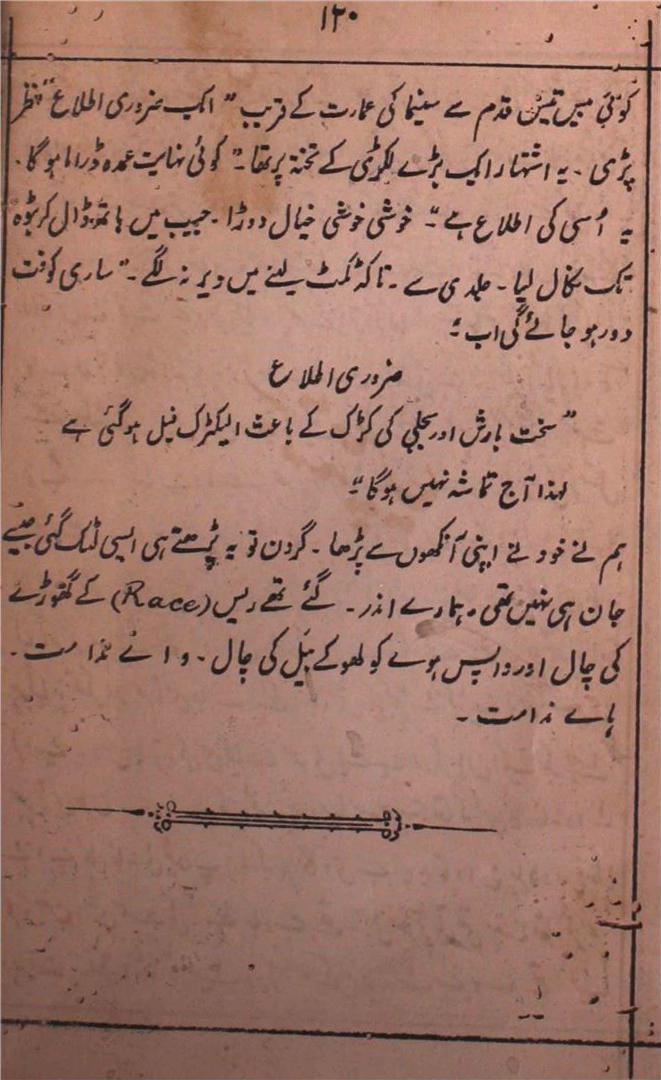 ۱۲۰
کوئی بیس تیس قدم سے سینما کی عمارت کے قریب " ایک ضروری اطلاع " نظر
پڑی ۔ یہ اشتہار ایک بڑے لکڑی کے تختہ پر تھا ۔ " کوئی نہایت عمدہ ڈراما ہوگا ۔
یہ اُسی کی اطلاع ہے " ۔ خوشی خوشی خیال دوڑا ۔ جیب میں ہاتھ ڈال کر بٹوہ
تک نکال لیا ۔ جلدی سے ۔ تاکہ ٹکٹ لینے میں دیر نہ لگے ۔ " ساری کوفت
دور ہو جائے گی اب "
ضروری اطلاع
" سخت بارش اور بجلی کی کڑک کے باعث الیکٹرک فیل ہوگئی ہے
لہذا آج تماشہ نہیں ہوگا " ۔
ہم نے خود نے اپنی آنکھوں سے پڑھا ۔ گردن تو یہ پڑھتے ہی ایسی لٹک گئی جیسے
جان ہی نہیں تھی ہمارے اندر ۔ گئے تھے ریس (Race) کے گھوڑے
کی چال اور واپس ہوے کولھو کے بیل کی چال ۔ وائے ندامت ۔
ہاے ندامت ۔